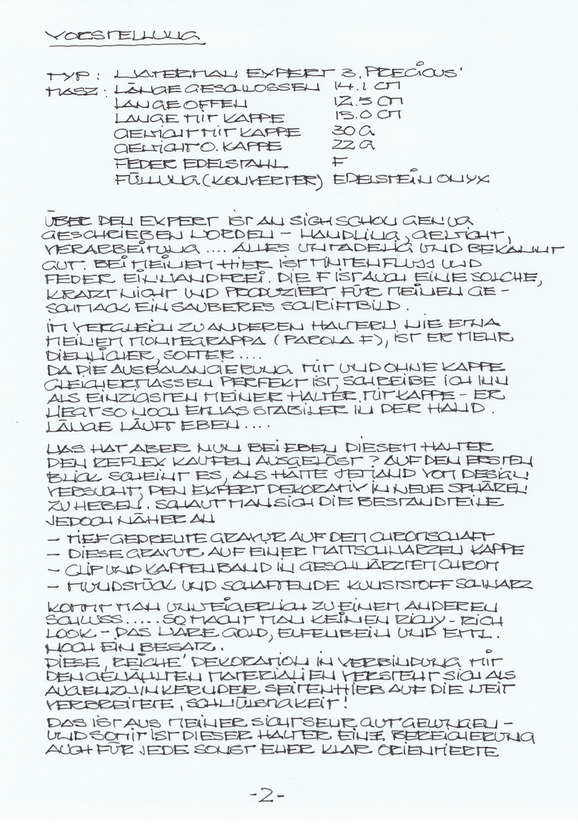 VORSTELLUNG
TYP: WATERMAN EXPERT 3 'PRECIOUS'
MASZ: LÄNGE GESCHLOSSEN 14.1 CM
LÄNGE OFFEN 12.5 CM
LÄNGE MIT KAPPE 15.0 CM
GEWICHT MIT KAPPE 30 G
GEWICHT O. KAPPE 22 G
FEDER EDELSTAHL F
FÜLLUNG (KONVERTER) EDELSTEIN ONYX
ÜBER DEN EXPERT IST AN SICH SCHON GENUG
GESCHRIEBEN WORDEN - HANDLING, GEWICHT,
VERARBEITUNG .... ALLES UNTADELIG UND BEKANNT
GUT. BEI MEINEM HIER IST TINTENFLUSS UND
FEDER EINWANDFREI. DIE F IST AUCH EINE SOLCHE,
KRATZT NICHT UND PRODUZIERT FÜR MEINEN GE-
SCHMACK EIN SAUBERES SCHRIFTBILD.
IM VERGLEICH ZU ANDEREN HALTERN, WIE ETWA
MEINEM MONTEGRAPPA (PAROLA F), IST ER MEHR
DIENLICHER, SOFTER....
DA DIE AUSBALANCIERUNG MIT UND OHNE KAPPE
GLEICHERMASSEN PERFEKT IST, SCHREIBE ICH IHN
ALS EINZIGSTEN MEINER HALTER MIT KAPPE - ER
LIEGT SO NOCH ETWAS STABILER IN DER HAND.
LÄNGE LÄUFT EBEN....
WAS HAT ABER NUN BEI EBEN DIESEM HALTER
DEN REFLEX KAUFEN AUSGELÖST? AUF DEN ERSTEN
BLICK SCHEINT ES, ALS HÄTTE JEMAND VOM DESIGN
VERSUCHT, DEN EXPERT DEKORATIV IN NEUE SPHÄREN
ZU HEBEN. SCHAUT MAN SICH DIE BESTANDTEILE
JEDOCH NÄHER AN
- TIEF GEDREHTE GRAVUR AUF DEM CHROMSCHAFT
- DIESE GRAVUR AUF EINER MATTSCHWARZEN KAPPE
- CLIP UND KAPPENBAND IN GESCHWÄRZTEM CHROM
- MUNDSTÜCK UND SCHAFTENDE KUNSTSTOFF SCHWARZ
KOMMT MAN UNWEIGERLICH ZU EINEM ANDEREN
SCHLUSS...... SO MACHT MAN KEINEN RICHY-RICH
LOOK - DAS WÄRE GOLD, ELFENBEIN UND EMIL.
NOCH EIN BESATZ.
DIESE 'REICHE' DEKORATION IN VERBINDUNG MIT
DEN GEWÄHLTEN MATERIALIEN VERSTEHT SICH ALS
AUGENZWINKERNDER SEITENHIEB AUF DIE WEIT
VERBREITETE 'SCHWÜLSTIGKEIT'!
DAS IST AUS MEINER SICHT SEHR GUT GELUNGEN -
UND SOMIT IST DIESER HALTER EINE BEREICHERUNG
AUCH FÜR JEDE SONST EHER KLAR ORIENTIERTE
-2-